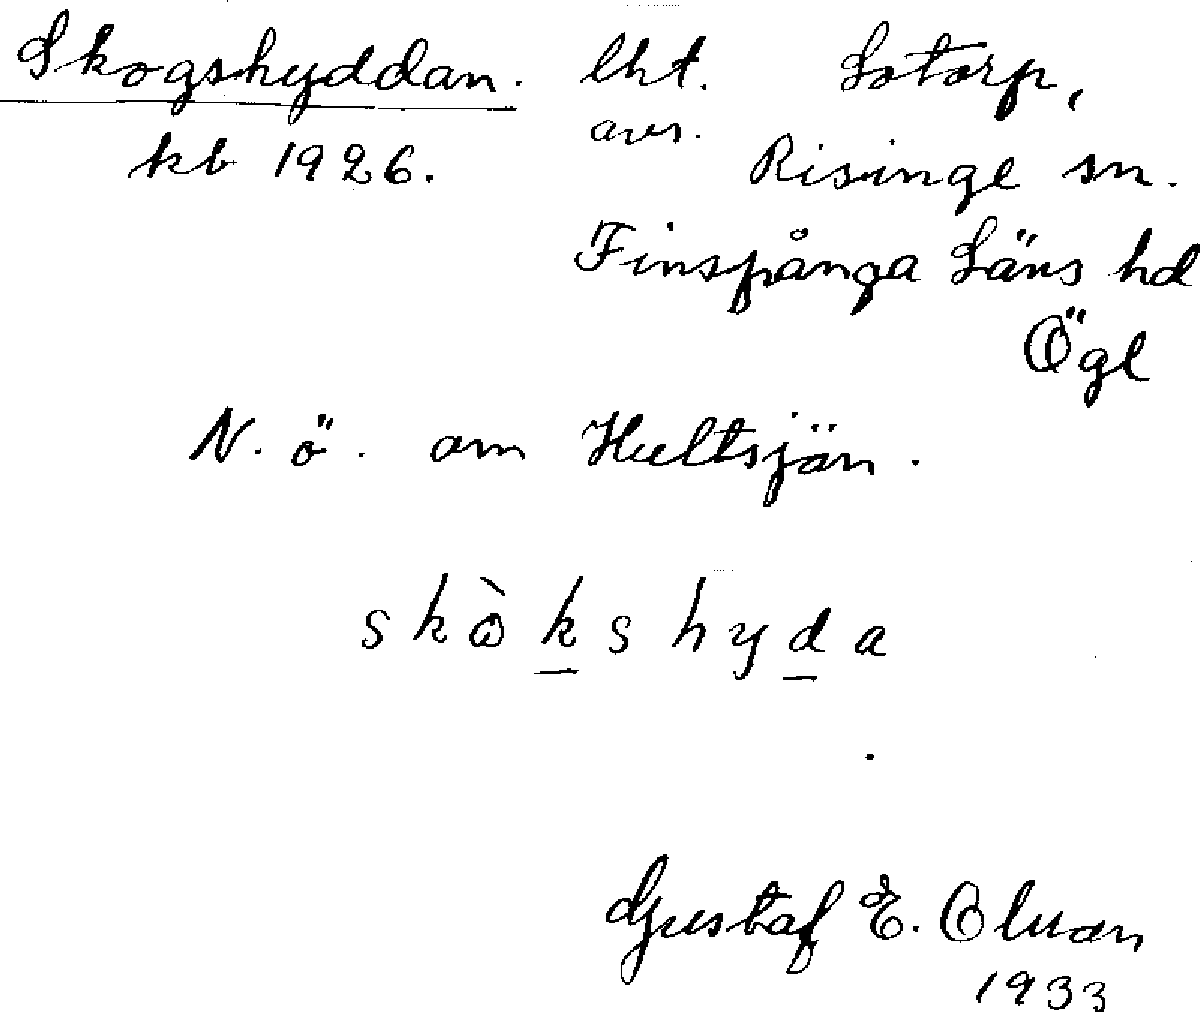 Skogshyddan. lht. Lotorp,
avs.
kb 1926. Risinge sn.
Finspånga Läns hd
Ögl
N. ö. om Hultsjön.
skòkshyda
Gustaf E.
1933